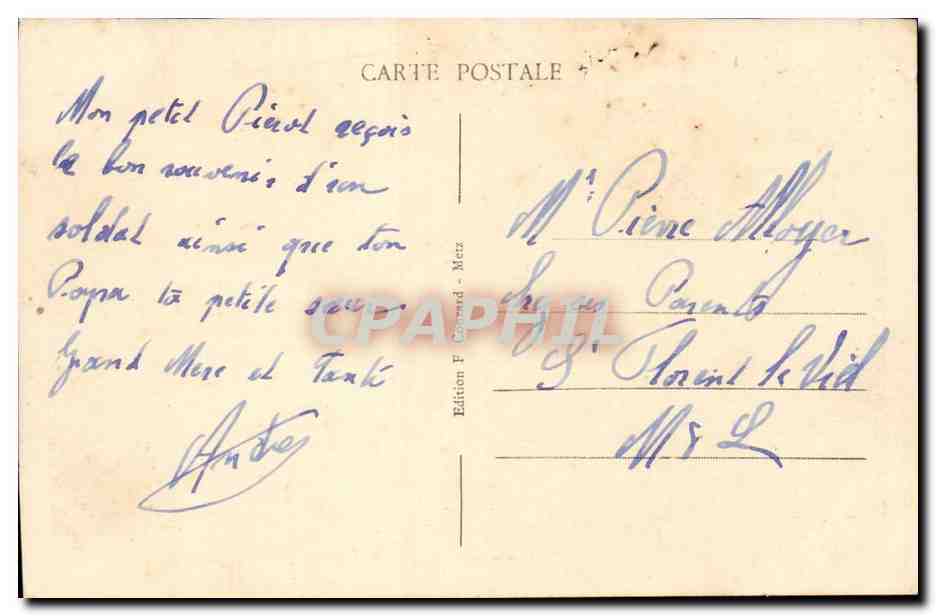 CARTE POSTALE
Mon petit Pierot reçois
le bon souvenir d'un
soldat ainsi que ton
Papa ta petite sœur
Grand Mere et Tante
André
Edition F - Metz
Mr Pierre
ses Parents
St Florent le Viel
M & L
CPAPHIL